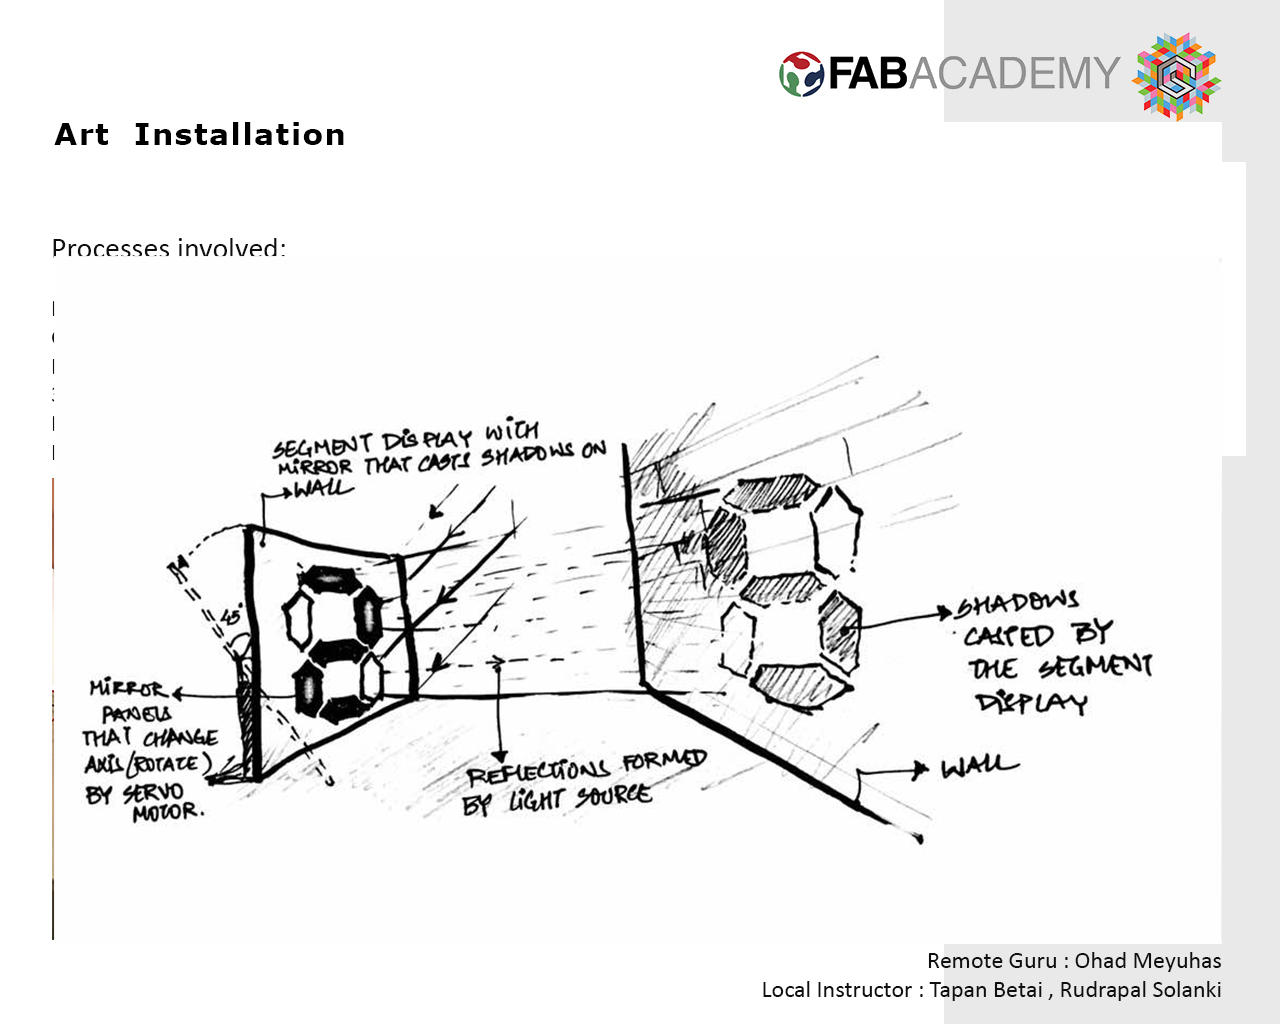 FABACADEMY
Art Installation
Processes involved:
SEGMENT DISPLAY WITH
MIRROR THAT CASTS SHADOWS ON
WALL
45°
MIRROR
PANELS
THAT CHANGE
AXIS (ROTATE)
BY SERVO
MOTOR.
REFLECTIONS FORMED
BY LIGHT SOURCE
SHADOWS
CASTED BY
THE SEGMENT
DISPLAY
WALL
Remote Guru : Ohad Meyuhas
Local Instructor : Tapan Betai , Rudrapal Solanki